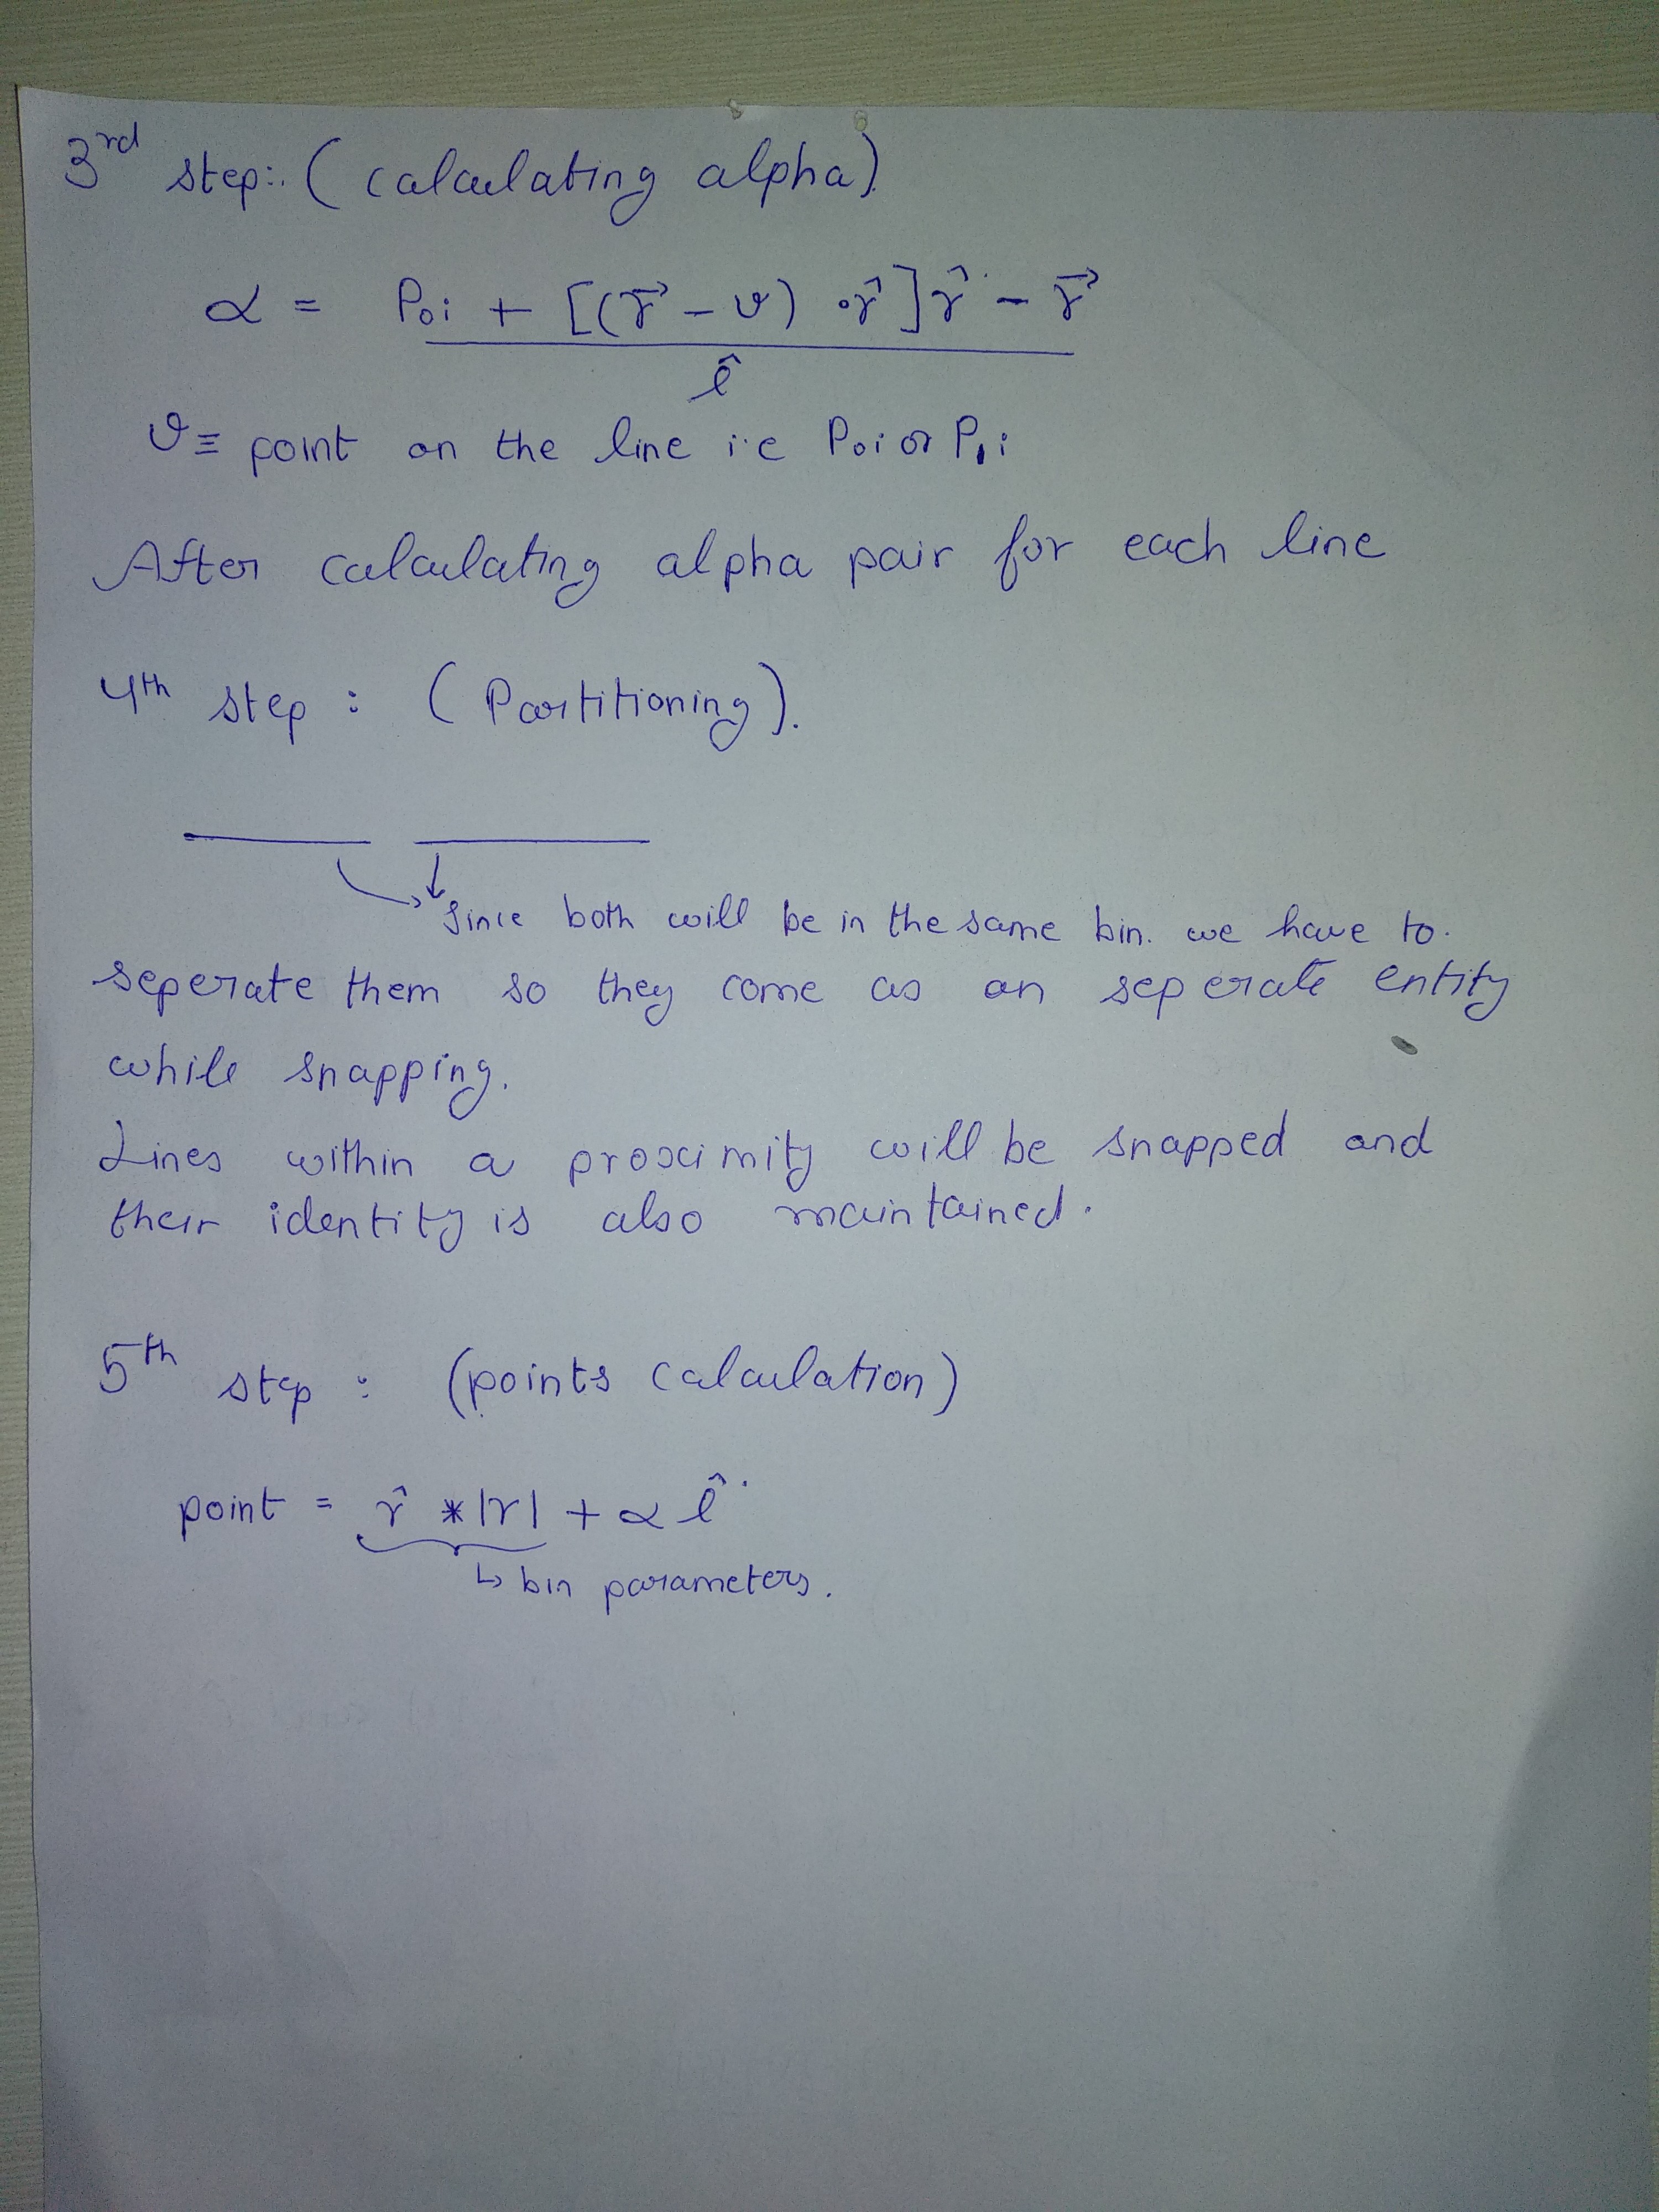 3rd step:. (calculating alpha).
α = P0i + [(r⃗ - v) • r̂] r̂ - r⃗
l̂
v ≡ point on the line i.e P0i or P1i
After calculating alpha pair for each line
4th step : (Partitioning).
Since both will be in the same bin. we have to.
seperate them so they come as an seperate entity
while snapping.
Lines within a proximity will be snapped and
their identity is also maintained.
5th step : (points calculation)
point = r̂ * |r| + α l̂
↳ bin parameters.